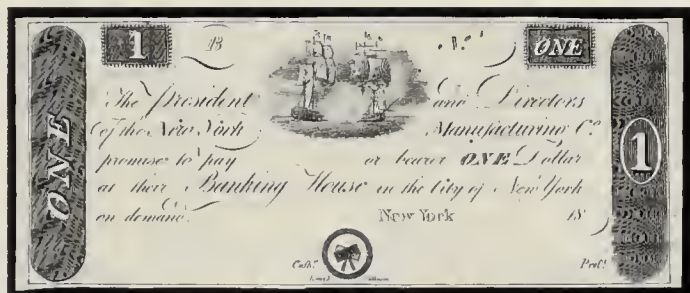 1 ONE
The President and Directors
of the New York Manufacturing Co.
promises to pay or bearer ONE Dollar
at their Banking House in the City of New York
on demand. New York 18
Cashr. Prest.
ONE
1